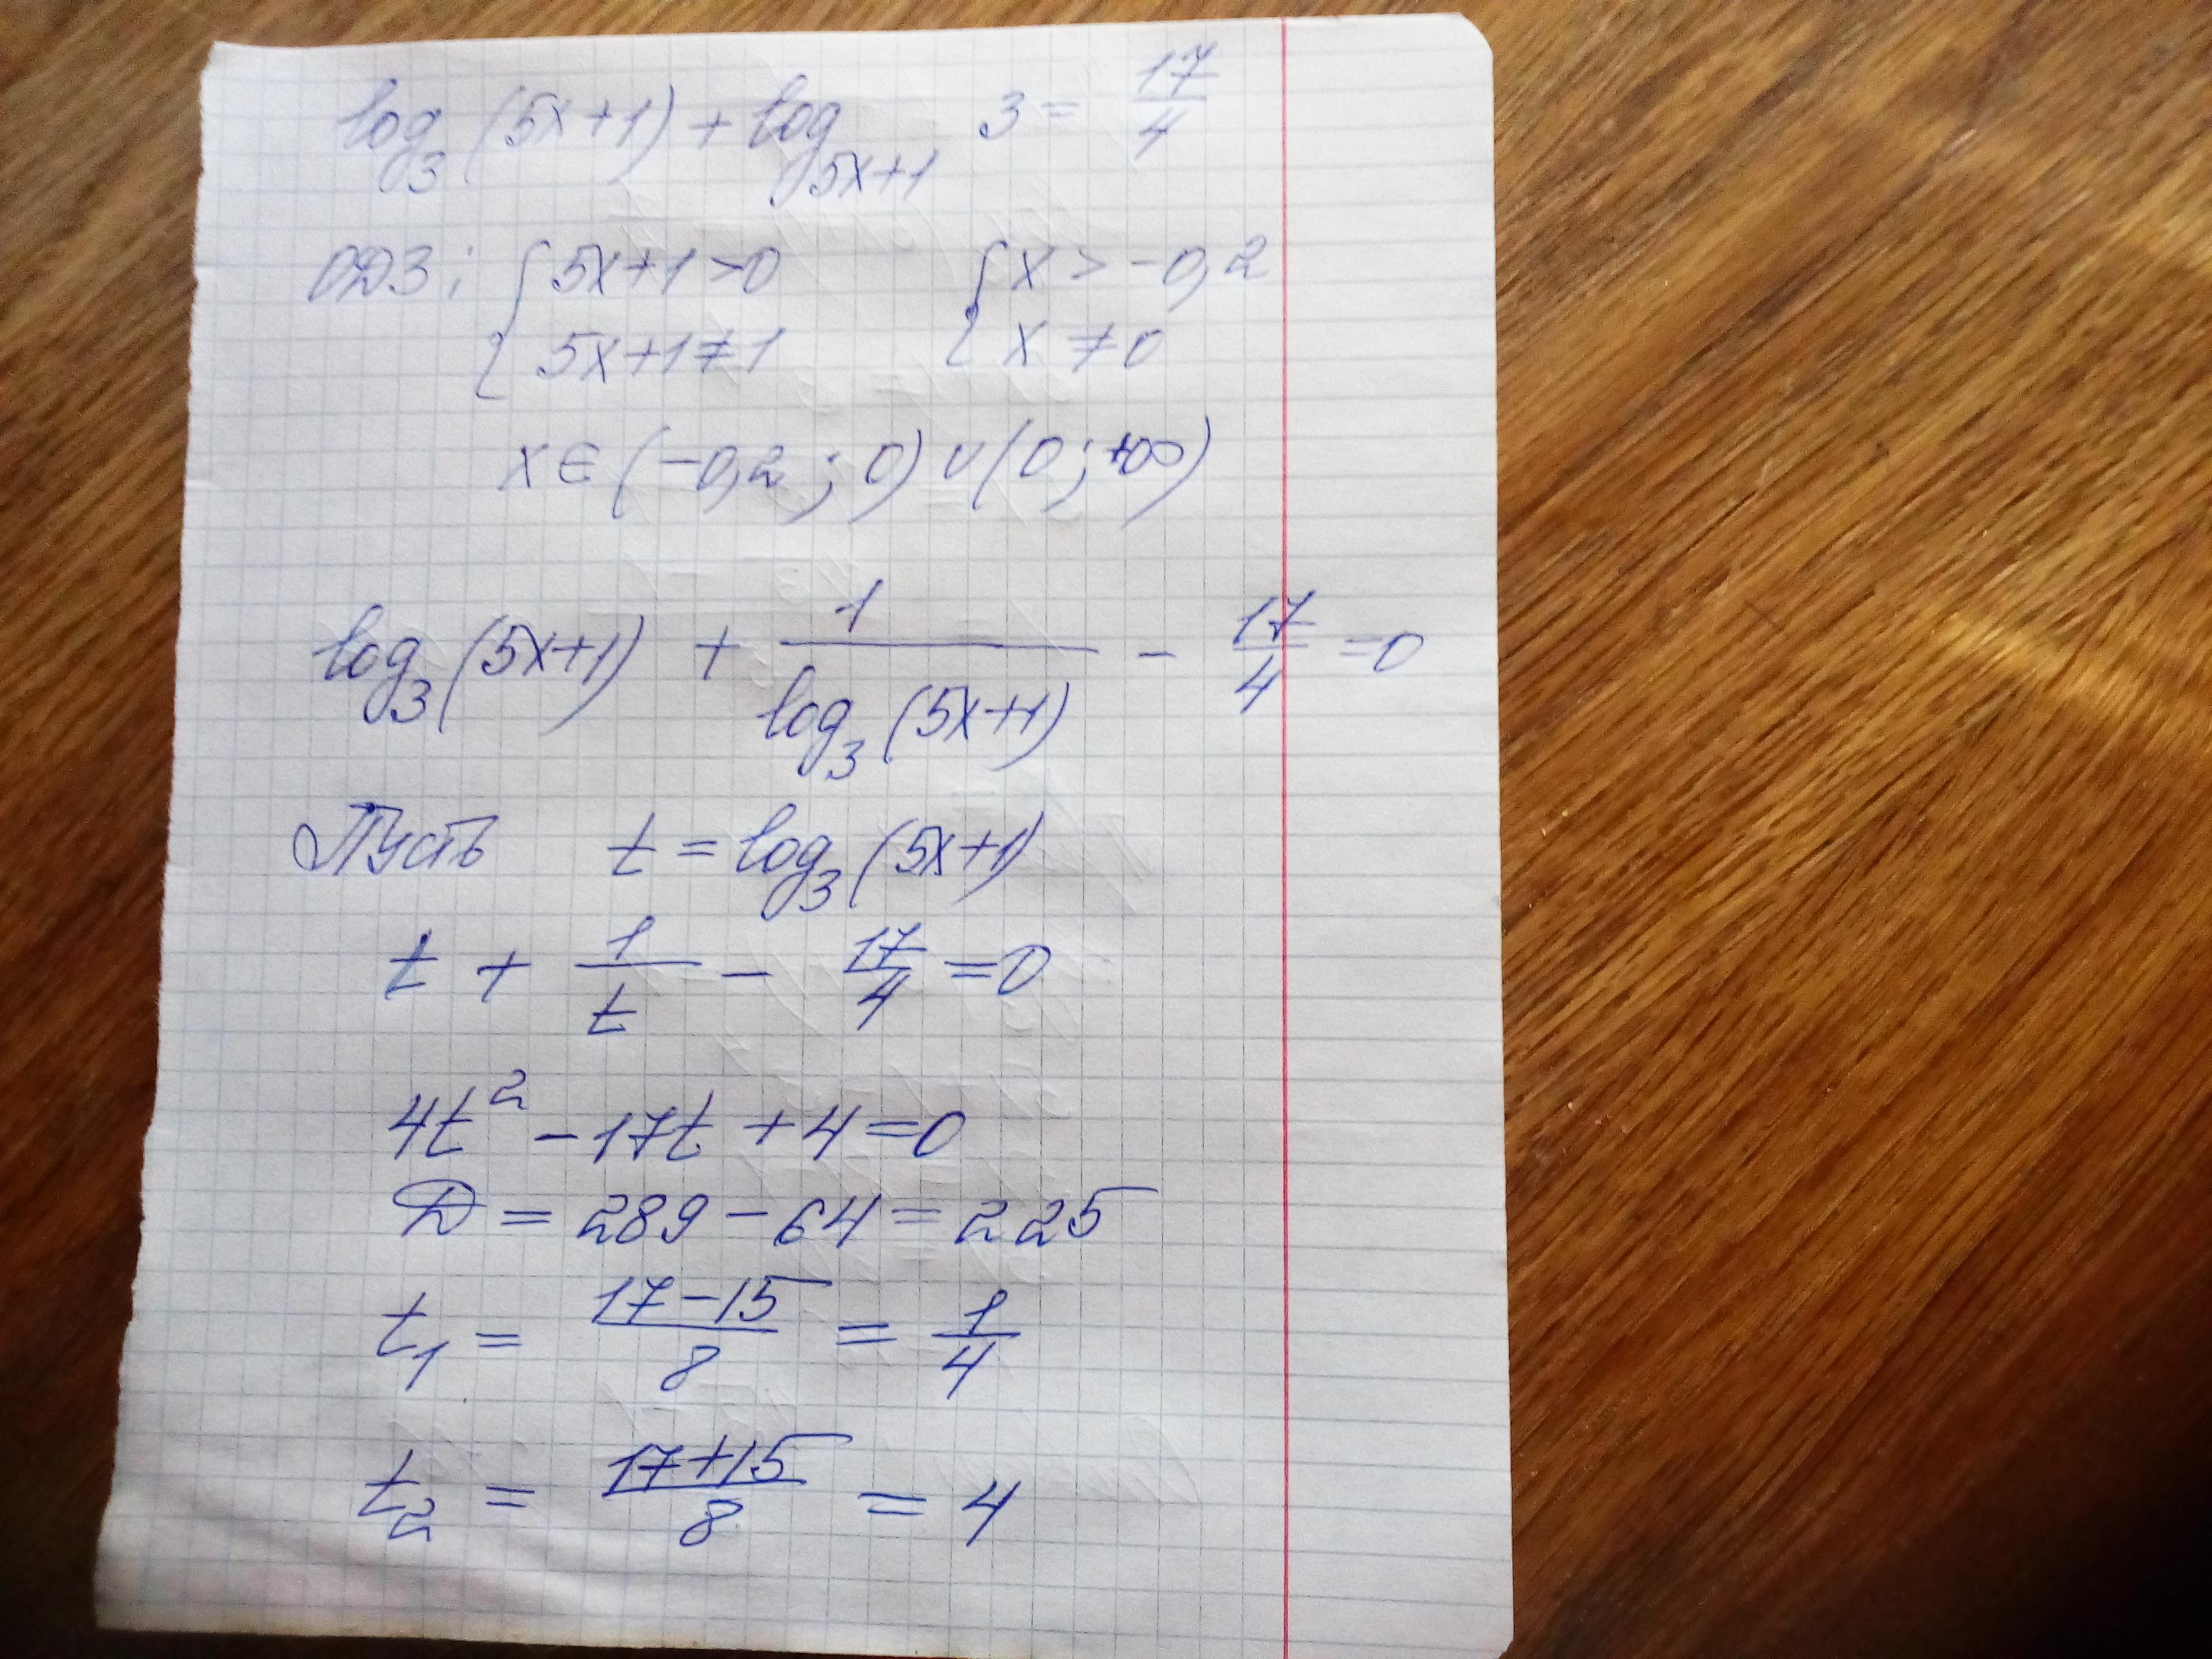 log₃(5x+1) + log₅ₓ₊₁ 3 = 17/4
ОДЗ: { 5x+1>0 { x > -0,2
{ 5x+1≠1 { x ≠ 0
x ∈ (-0,2; 0) ∪ (0; +∞)
log₃(5x+1) + 1/log₃(5x+1) - 17/4 = 0
Пусть t = log₃(5x+1)
t + 1/t - 17/4 = 0
4t² - 17t + 4 = 0
D = 289 - 64 = 225
t₁ = (17-15)/8 = 1/4
t₂ = (17+15)/8 = 4